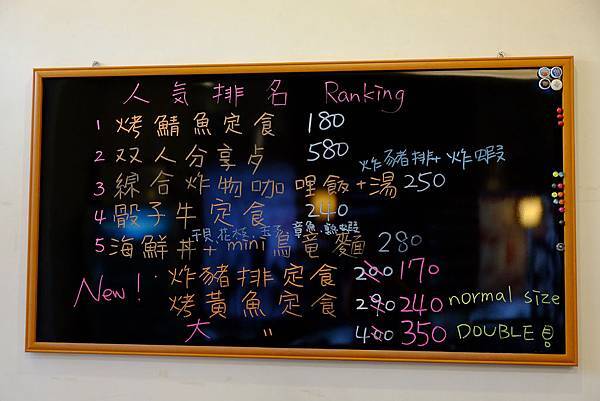 人気排名 Ranking
1 烤鯖魚定食 180
2 双人分享歺 580
炸豬排+炸蝦
3 綜合炸物咖哩飯+湯 250
4 骰子牛定食 240
章魚.熟蝦
5 海鮮丼+mini烏竜麵 280
New! 炸豬排定食 200 170
烤黃魚定食 290 240 normal size
大 〃 400 350 DOUBLE!